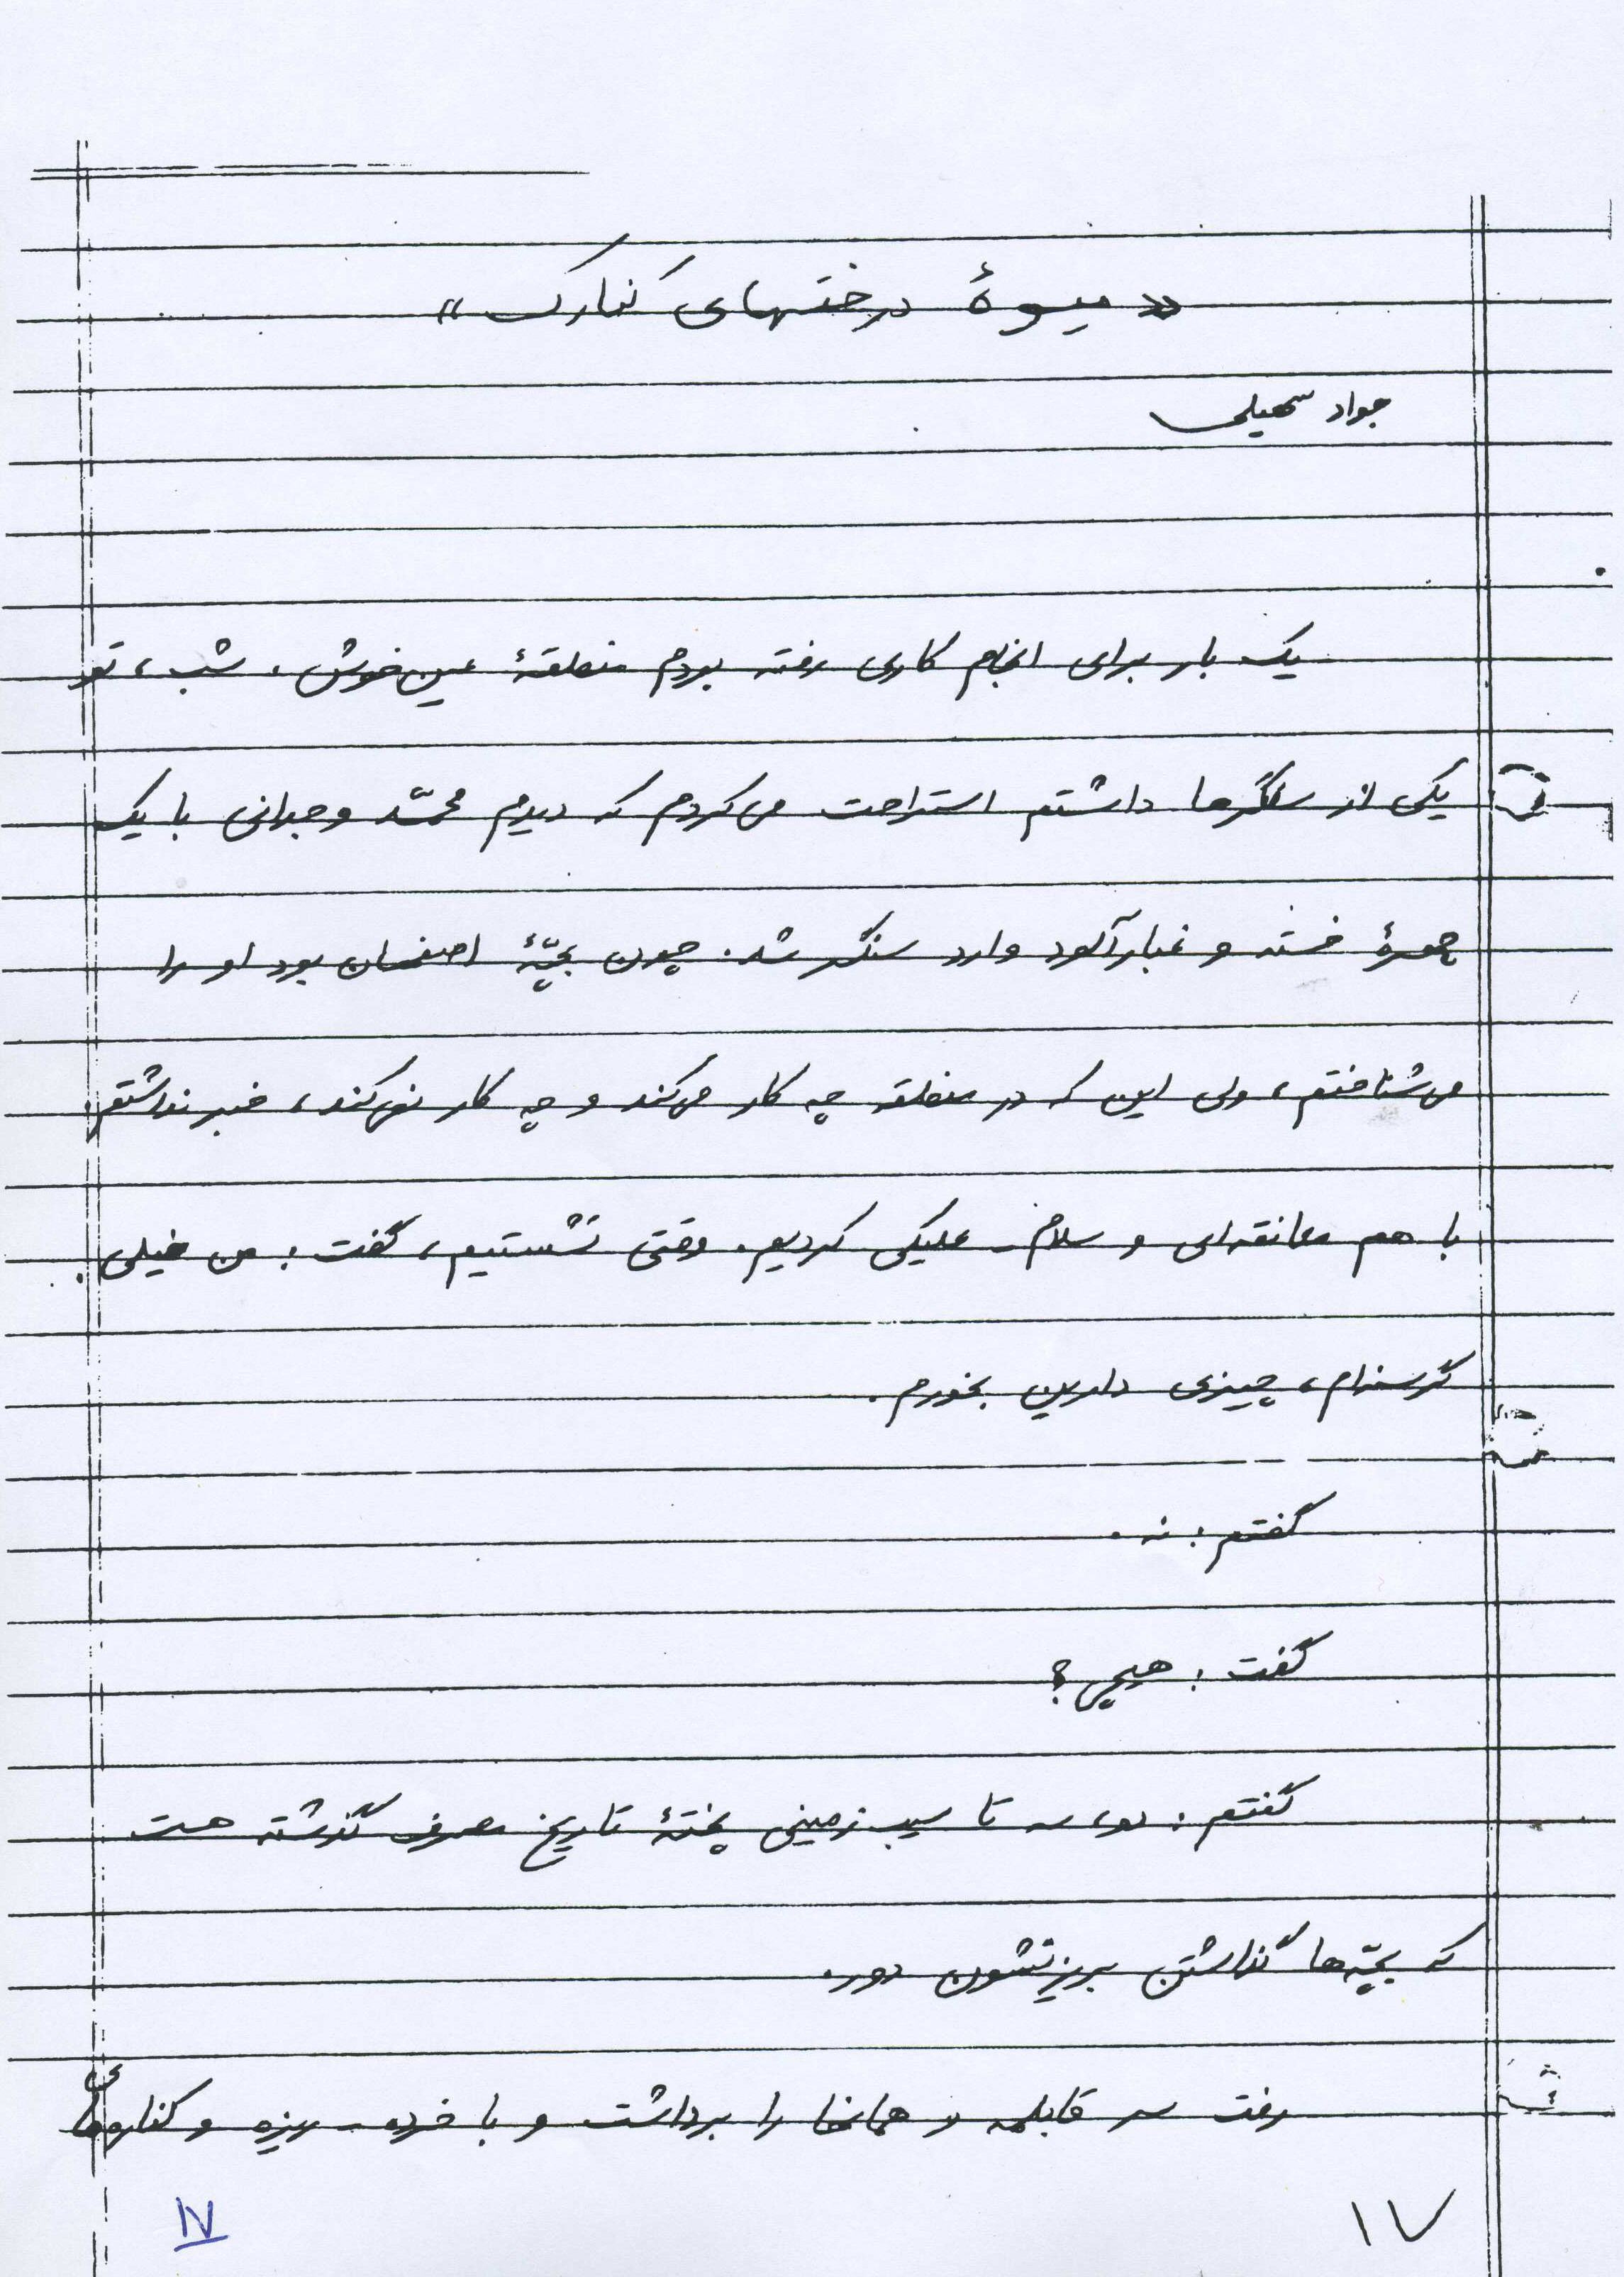 «میوهٔ درختهای کنارک»
جواد سهیلی
یک بار برای انجام کاری رفته بودم منطقهٔ عین‌خوش، شب، تو
یکی از سنگرها داشتم استراحت می‌کردم که دیدم محمّد وجدانی با یک
چهرهٔ خسته و غبارآلود وارد سنگر شد. چون بچّهٔ اصفهان بود او را
می‌شناختم، ولی این که در منطقه چه کار می‌کند و چه کار نمی‌کند، خبر نداشتم.
با هم معانقه‌ای و سلام ـ علیکی کردیم. وقتی نشستیم، گفت: من خیلی
گرسنه‌ام، چیزی دارین بخورم.
گفتم: نه.
گفت: هیچی؟
گفتم: دو، سه تا سیب‌زمینی پختهٔ تاریخ مصرف گذشته هست
که بچّه‌ها گذاشتن بریزنشون دور.
رفت سر قابلمه و همانها را برداشت و با خرده ـ ریزه و کناره‌های
۱۷
۱۷